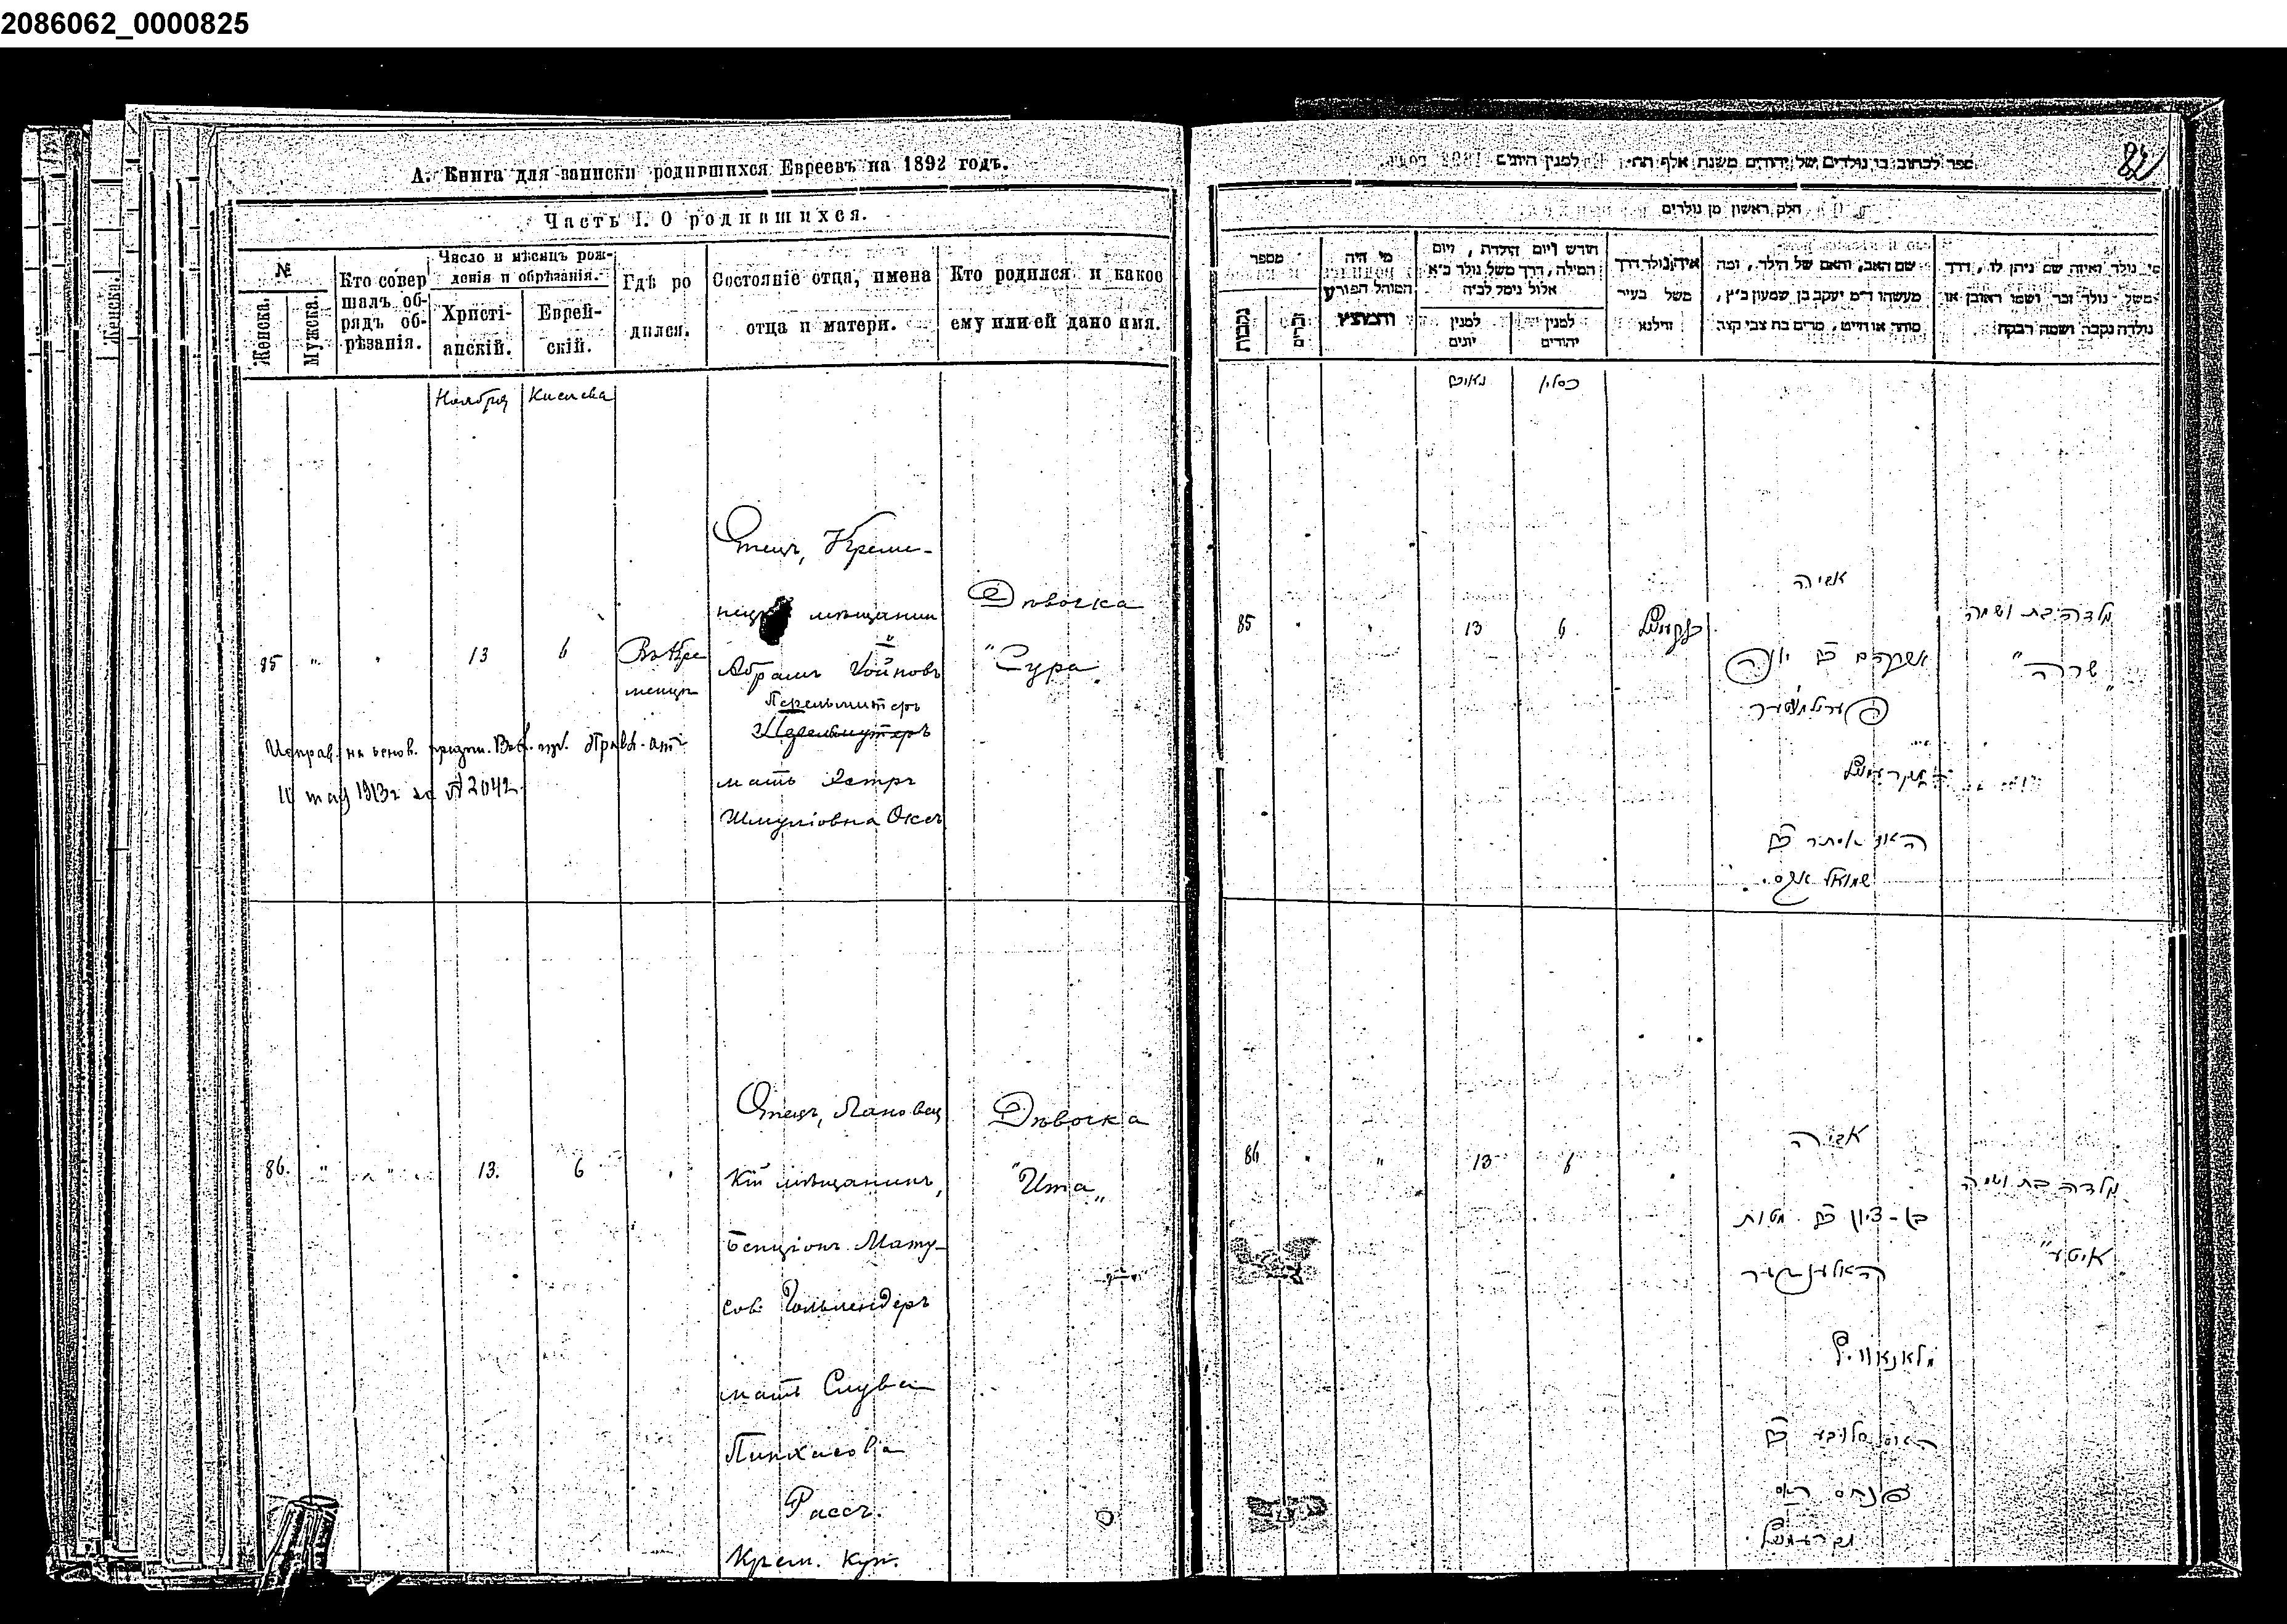 2086062_0000825
А. Книга для записки родившихся Евреевъ на 1892 годъ.
Часть I. О родившихся.
№
Женска.
Мужска.
Кто совер
шалъ об-
рядъ об-
рѣзанія.
Число и мѣсяцъ рож-
денія и обрѣзанія.
Христі-
анскій.
Еврей-
скій.
Гдѣ ро
дился.
Состояніе отца, имена
отца и матери.
Кто родился и какое
ему или ей дано имя.
Ноября
Кислева
85
"
13
6
Въ Кре
менцѣ
Отецъ, Креме-
мѣщанин
Абрамъ Іойновъ
Перельмитеръ
мать Эстръ
Шмуліовна Оксъ
Дѣвочка
"Сура"
11 мая 1913 г за № 2042
86.
"
"
13.
6
Отецъ, Лановец
кій мѣщанинъ,
Бенціонъ Мату-
совъ Гольмендеръ
мать Слува
Пинхасова
Рассъ.
Крем. куп.
Дѣвочка
"Ита"
82
ספר לכתוב בו נולדים של יהודים משנת אלף תת למנין היונים
חלק ראשון מן נולדים
מספר
נקבות
זכרים
מי היה
המוהל הפורע
והמוצץ
חודש ויום הולדת, ויום
המילה, דרך משל נולד כ״א
אלול נימל לב״ה
למנין
יונים
למנין
יהודים
איה נולד דרך
משל בעיר
ווילנא
שם האב, והאם של הילד, ומה
מעשהו ד״מ יעקב בן שמעון כ״ץ,
סוחר או חייט, מרים בת צבי קצב
מי נולד ואיזה שם ניתן לו, דרך
משל נולד זכר ושמו ראובן או
נולדה נקבה ושמה רבקה
כסלו
85
13
6
אביה
אברהם ב״ר יונה
פערילמוטער
האם אסתר ב״ר
שמואל אקס.
נולדה בת ושמה
"שרה"
86
"
13
6
אביה
בן-ציון ב״ר מטות
נולדה בת ושמה
"איטע"